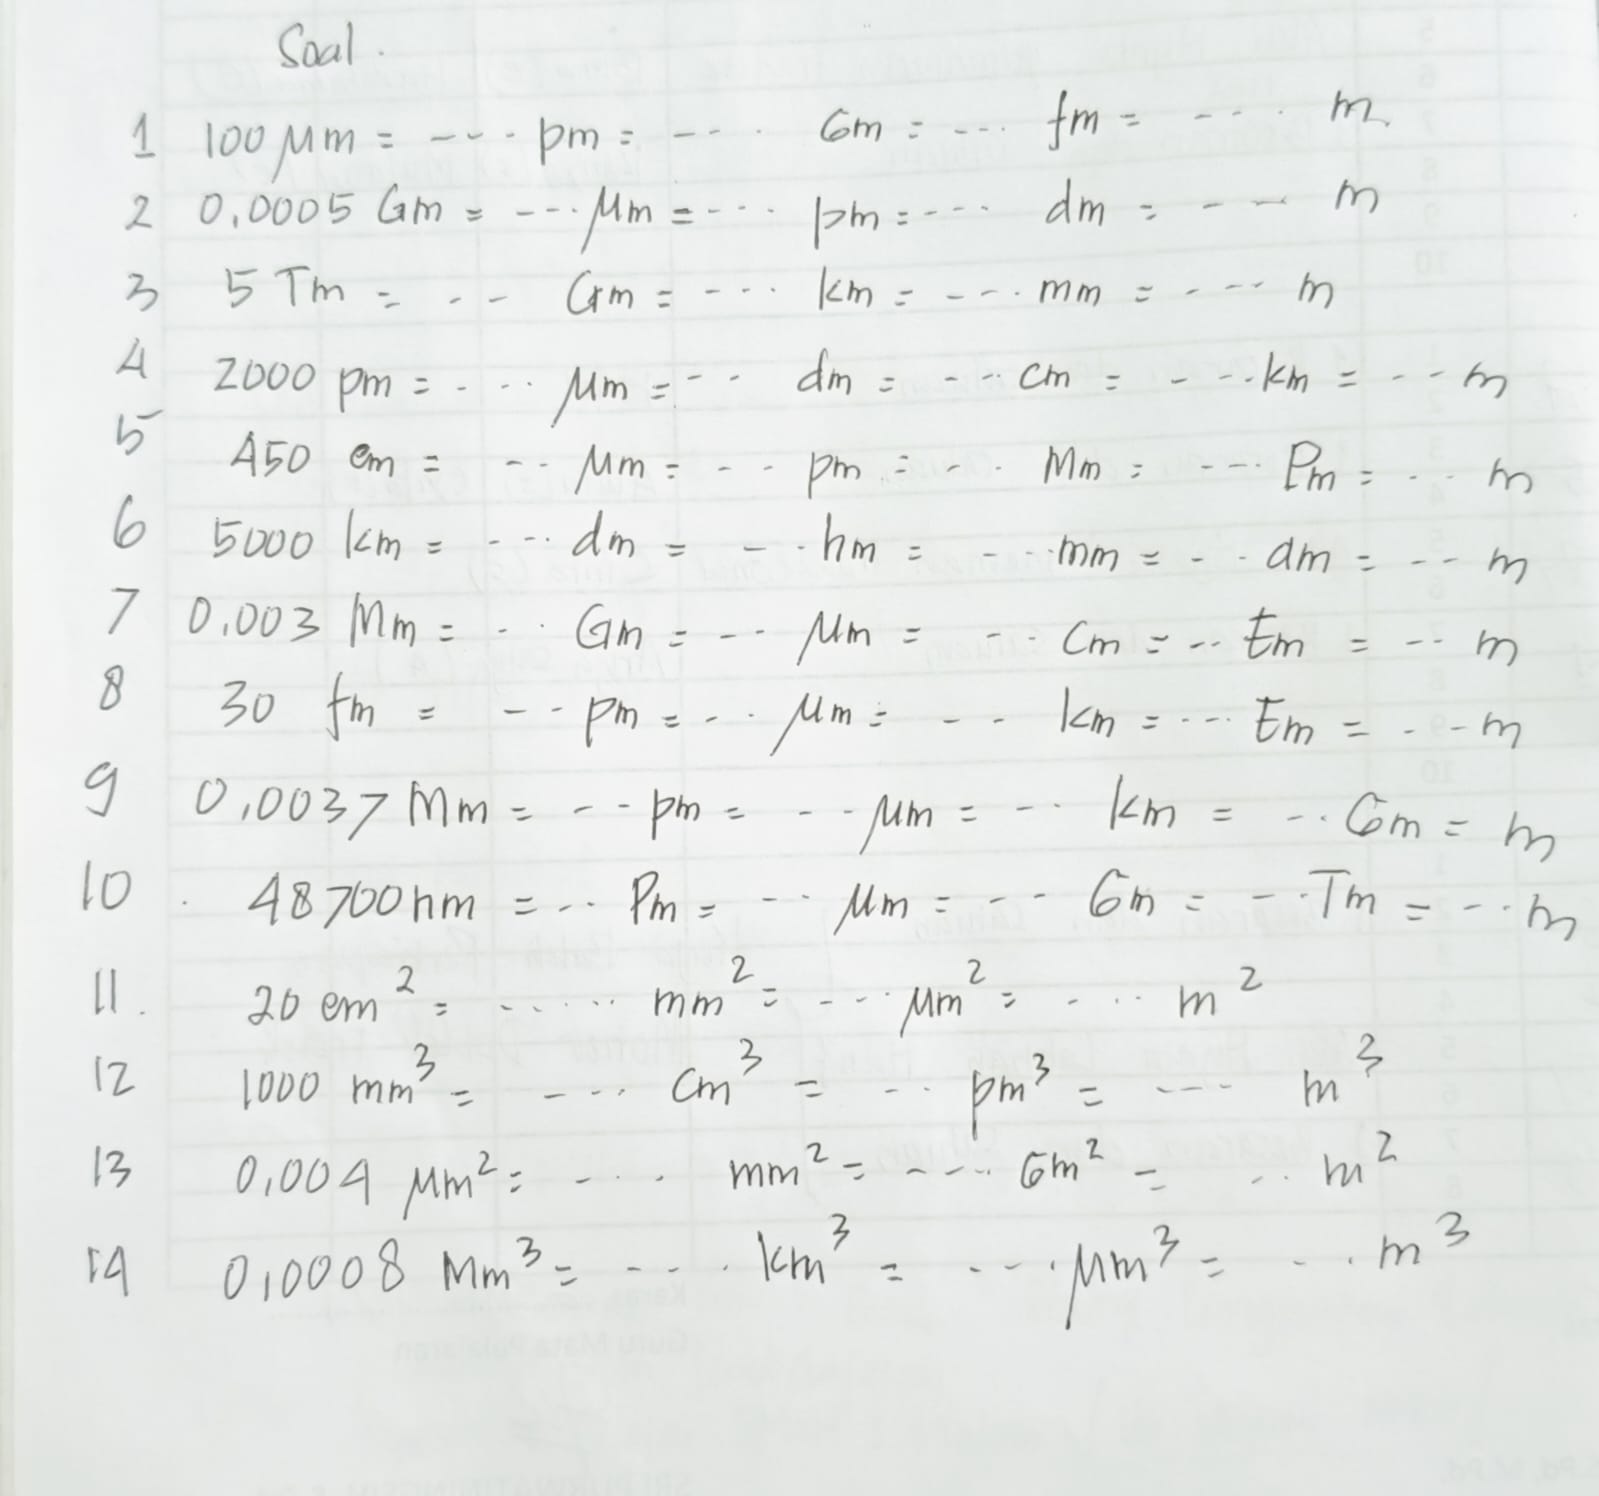 Soal.
1 100 μm = ---- pm = ---- Gm = --- fm = ---- m.
2 0,0005 Gm = ---- μm = ---- pm = ---- dm = --- m
3 5 Tm = --- Gm = ---- km = ---- mm = ---- m
4 2000 pm = ---- μm = --- dm = ---- cm = ---- km = --- m
5 450 cm = --- μm = --- pm = --- Mm = ---- Pm = --- m
6 5000 km = ---- dm = --- hm = ---- mm = --- dm = --- m
7 0,003 Mm = --- Gm = --- μm = --- Cm = --- Em = --- m
8 30 fm = --- pm = --- μm = --- km = ---- Em = --- m
9 0,0037 Mm = --- pm = --- μm = --- km = --- Gm = m
10 . 48700 nm = --- Pm = --- μm = --- Gm = --- Tm = --- m
11. 20 cm² = ...... mm² = ---- μm² = ---- m²
12 1000 mm³ = ---- cm³ = --- pm³ = ---- m³
13 0,004 μm² = ---- mm² = ---- Gm² = --- m²
14 0,0008 Mm³ = ---- km³ = ---- μm³ = --- m³